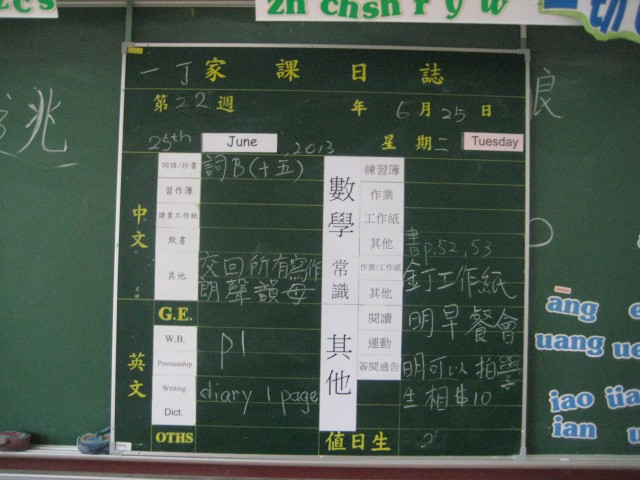 zh ch sh r y w
切
兆
良
一丁家課日誌
第22週 年 6月25日
25th June, 2013 星期二 Tuesday
中文
詞語/抄書 詞B(十五)
習作簿
課業工作紙
默書
其他 交回所有寫作
朗聲韻母
G.E.
英文
W.B. p1
Penmanship
Writing diary 1 page
Dict.
OTHS
數學
練習簿
作業
工作紙
其他 書p.52,53
常識
作業/工作紙 釘工作紙
其他
其他
閱讀 明早餐會
運動
簽閱通告 明可以拍學
生相$10
值日生 21
ang
uang
iao
ian